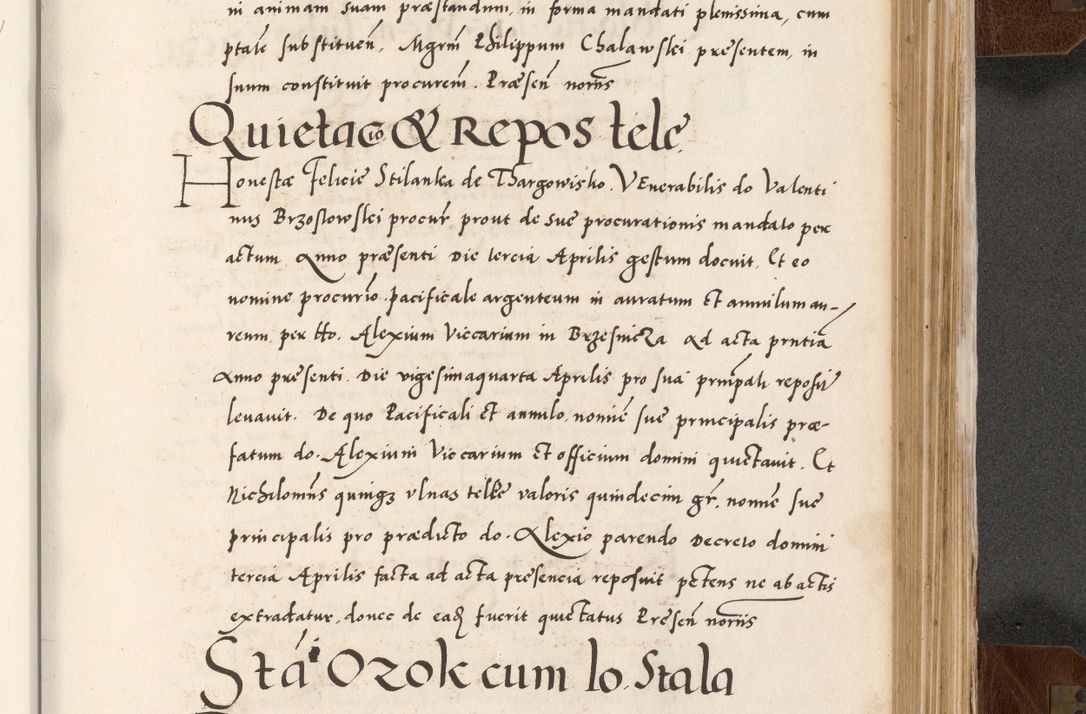 ni animam suam præstandum, in forma mandati plenissima, cum
ptate substituen̄, Mgrm̄ Philippum Chalawskei presentem, in
suum constituit procurem̄. Præsen̄ nōriis
Quietacio & Repos telę
Honestæ Felicie Stilanka de Thargowisko. VEnerabilis do Valenti
nus Brzostowskei procur̄, prout de sue procurationis mandato per
actum Anno præsenti Die tercia Aprilis gestum docuit, Et eo
nomine procurio. Pacificale argenteum in auratum et annulum au-
reum per tto. Alexium Viccarium in Brzesnicza Ad acta prntia
Anno presenti. Die vigesimaquarta Aprilis pro sua prncipali reposit
levavit. De quo Pacificali et annulo, nomīe sue principalis præ-
fatum do. Alexium Viccarium et officium domini quietavit. Et
Nichilomn̄s quinqz vlnas tellæ valoris quindecim gr. nomīe sue
principalis pro prædicto do. Alexio parendo Decreto domini
tercia Aprilis facta ad acta presencia reposuit petens ne ab actis
extradatur, donec de eadē fuerit quietatus Presen̄ nōriis
Sta Ozok cum lo. Stala